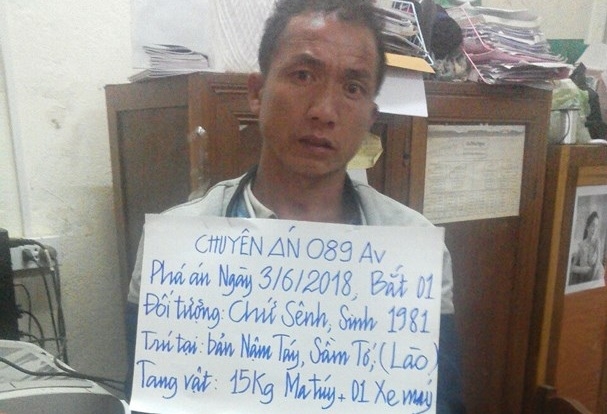 CHUYÊN ÁN 089 Av
Phá án Ngày 3/6/2018, Bắt 01
Đối tượng: Chứ Sênh, Sinh 1981
Trú tại: bản Nâm Táy, Sầm Tớ, (Lào)
Tang vật: 15Kg Ma túy + 01 Xe máy